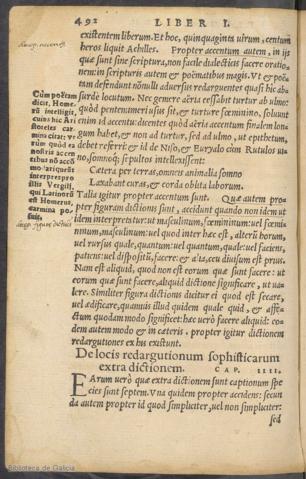 492 LIBER I.
existentem liberum. Et hoc, quinquaginta uirum, centum
heros liquit Achilles. Propter accentum autem, in ijs
quæ sunt sine scriptura, non facile dialecticis facere oratio-
nem: in scripturis autem & poëmatibus magis. Vt & poë-
tam defendunt nõnulli aduersus redarguentes quasi hic ab-
surde locutum. Nec gemere aëria cessabit turtur ab ulmo:
quòd penteminer, isus sit, & turture fœminino, soluunt
enim id accentu: dicentes quòd aëria accentum finalem lon-
gum habet, & non ad turtur, sed ad ulmo, ut epithetum,
debet referri: & id de Niso, & Euryalo cùm Rutulos ui-
no, somnoq; sepultos intellexisset:
Cætera per terras, omneis animalia somno
Laxabant curas, & corda oblita laborum.
Talia igitur propter accentum sunt. Quæ autem pro-
pter figuram dictionis sunt, accidunt quando non idem ut
idem interpretetur: ut masculinum, fœmininum: uel fœmi-
ninum, masculinum: uel quod inter hæc est, alterũ horum,
uel rursus quale, quantum: uel quantum, quale: uel faciens,
patiens: uel dispositũ, facere: & alia, ceu diuisum est prius.
Nam est aliquid, quod non est eorum quæ sunt facere: ut
eorum quæ sunt facere, aliquid dictione significare, ut ua-
lere. Similiter figura dictionis dicitur ei quod est secare,
uel ædificare, quamuis illud quidem quale quid, & affe-
ctum quodam modo significet: hæc uerò facere aliquid: eo-
dem autem modo & in cæteris. propter igitur dictionem
redargutiones ex his existunt.
De locis redargutionum sophisticarum
extra dictionem. CAP. IIII.
EArum uerò quæ extra dictionem sunt captionum spe
cies sunt septem. Vna quidem propter accidens: secun
da autem propter id quod simpliciter, uel non simpliciter:
sed
Cùm poëtam
dicit, Home-
rũ intelligit,
cuius hîc Ari
stoteles car-
mina citat: ve
rùm quòd ea
nostris accen
tibus nõ acco
mo
interpres pro
illis Vergilij,
qui Latinorũ
est Homerus,
carmina po-
suit.
Biblioteca de Galicia